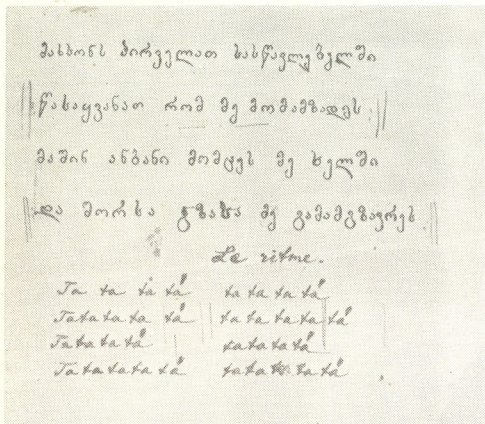 პირველათ სასწავლებელში
წასაყვანათ რომ მე მომამზადეს
მაშინ ანბანი მომცეს მე ხელში
და შორსა გზასა მე გამამგზავრეს
Le ritme.
Ta ta ta ta" ta ta ta ta"
Tatatata ta" tatatatata ta"
Tatatata" tatatata"
Tatatatata ta" tatata tata"